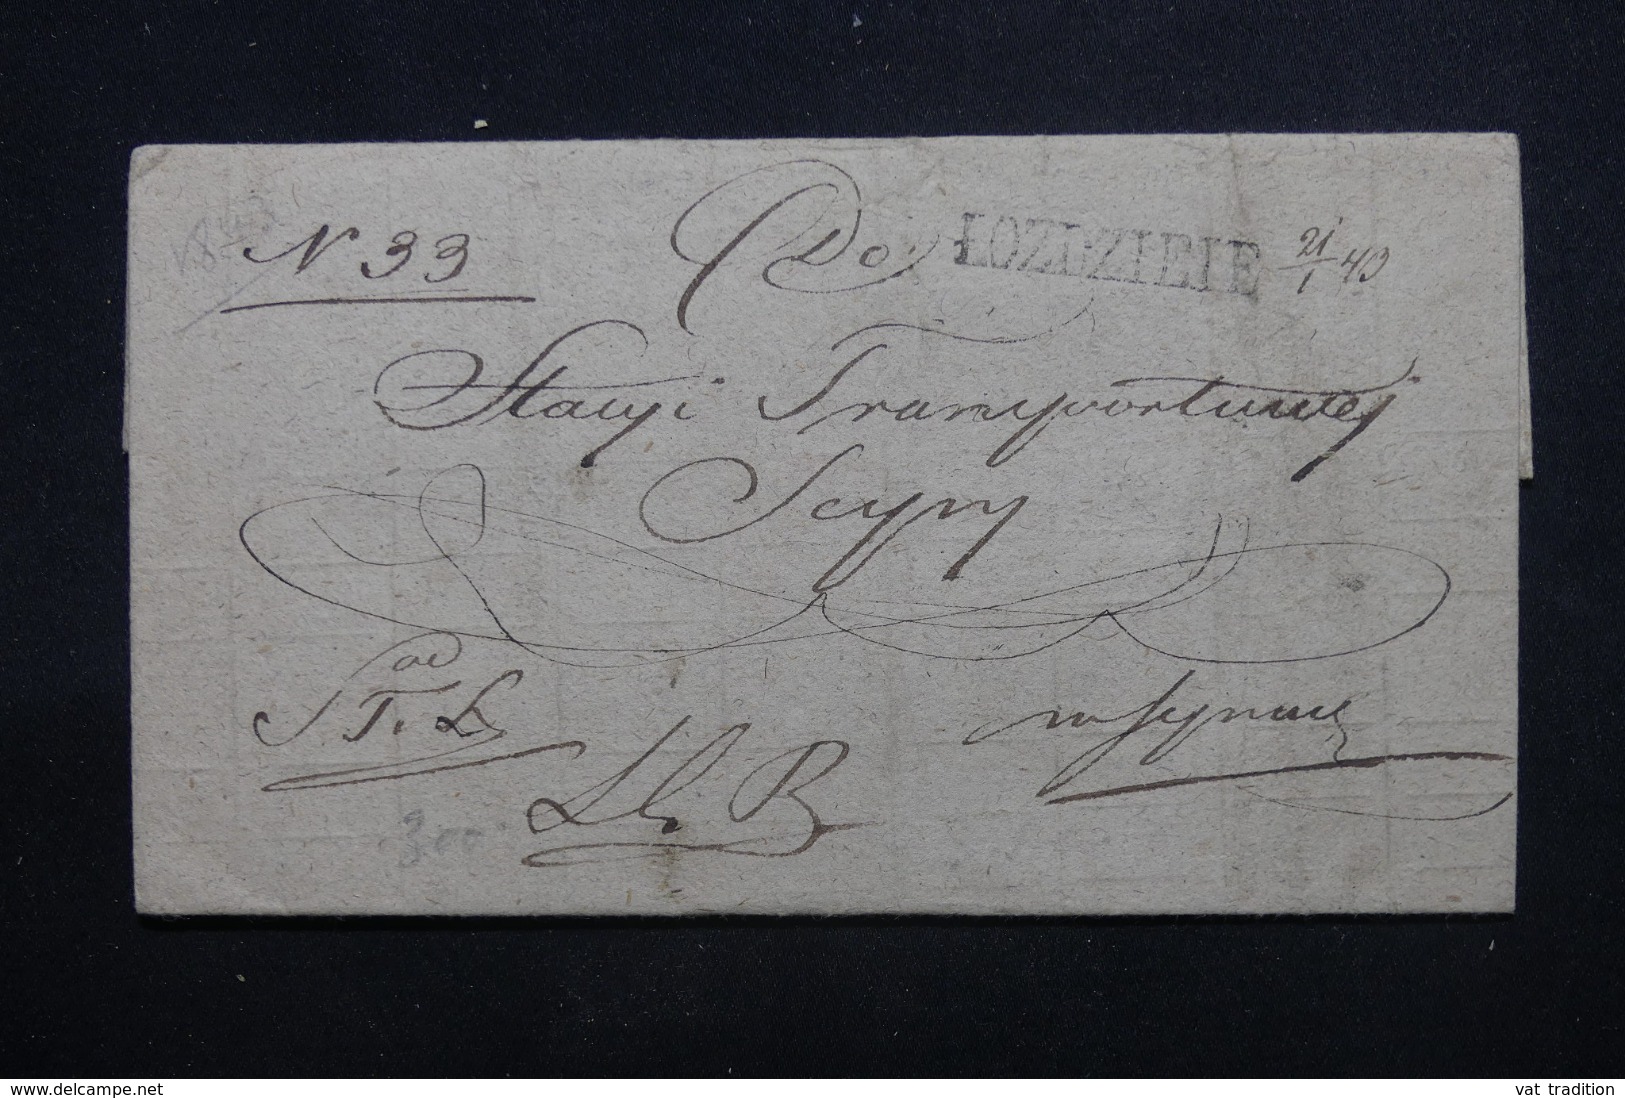 N 33 Do ŁOZDZIEIE 21/1 43
Stacyi Transportowej
Seyny
od
S. T. Ł.
w Seynach
300
www.delcampe.net
vat_tradition